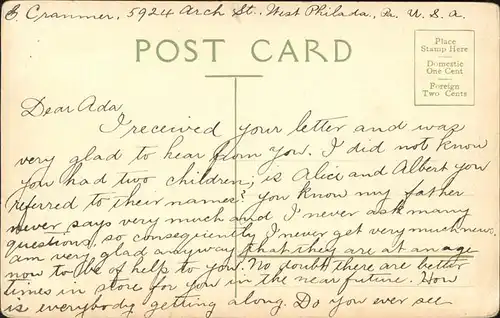 E. Cranmer, 5924 Arch St., West Philada., Pa. U. S. A.
POST CARD
Place
Stamp Here
Domestic
One Cent
Foreign
Two Cents
Dear Ada
I received your letter and was
very glad to hear from you. I did not know
you had two children, is Alice and Albert you
referred to their names? you know my father
never says very much and I never ask many
questions, so consequently I never get very much news.
am very glad anyway that they are at an age
now to be of help to you. No doubt there are better
times in store for you in the near future. How
is everybody getting along. Do you ever see